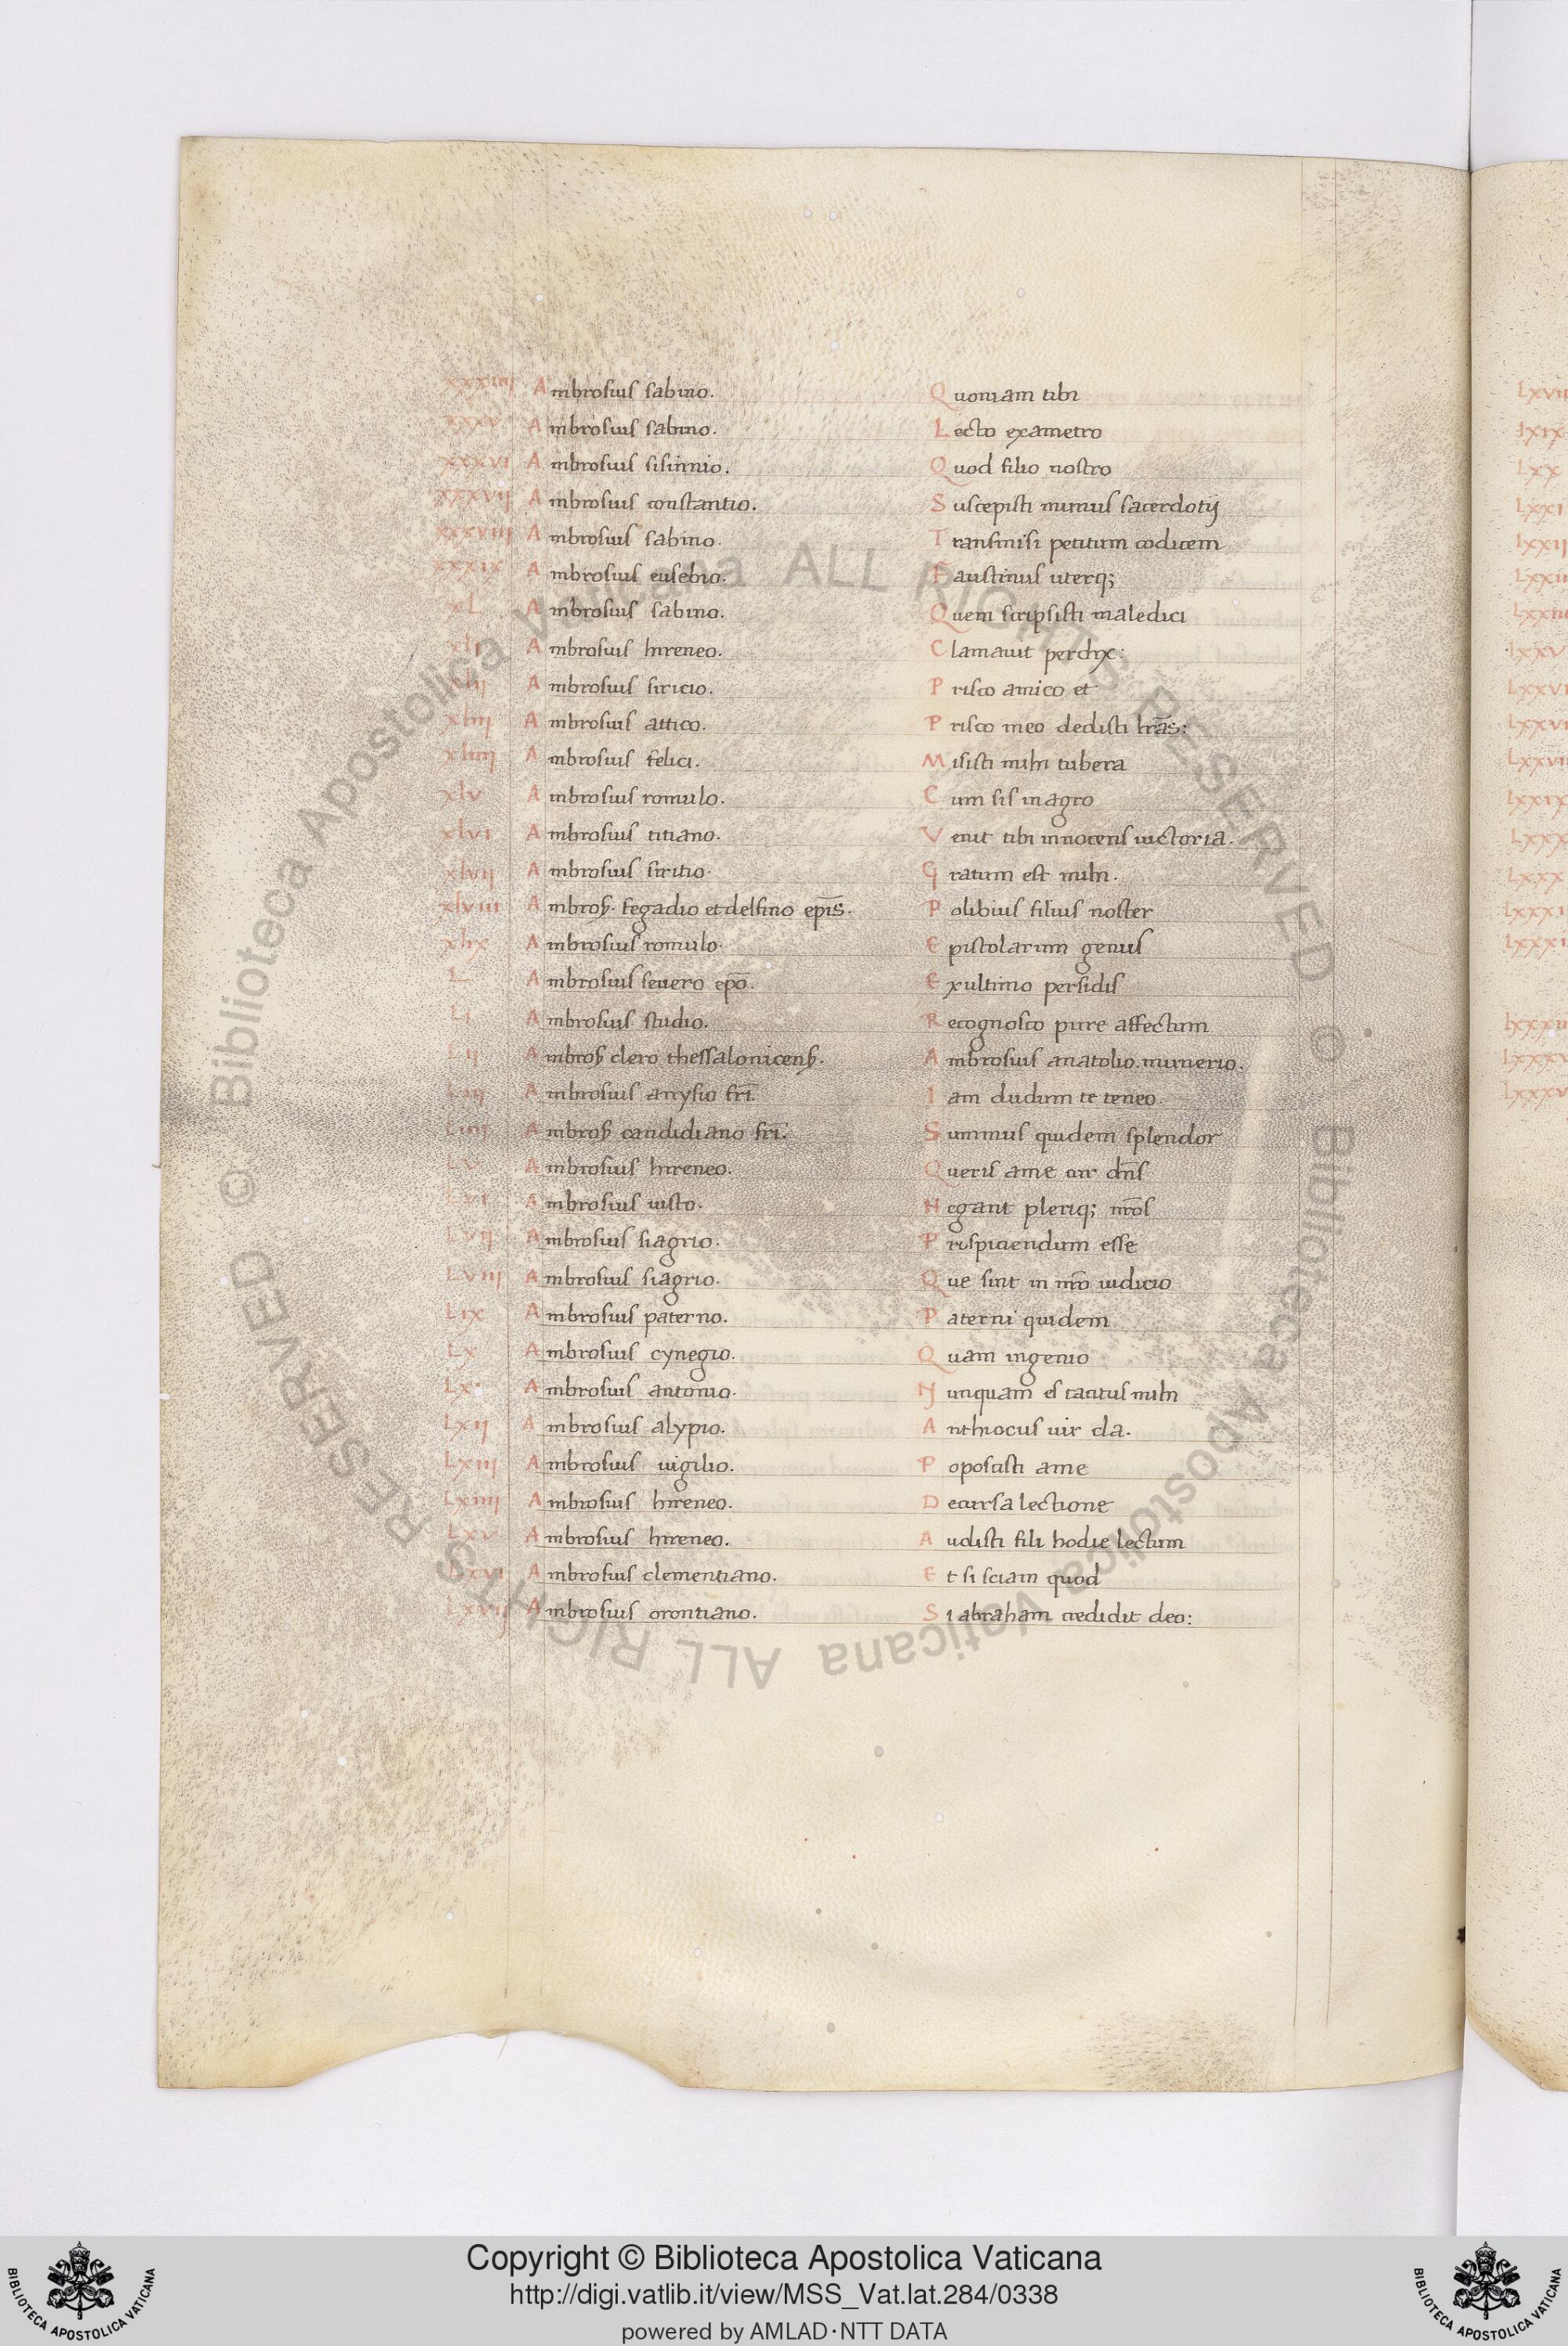 xxxiiij Ambrosius sabino. Quoniam tibi
xxxv Ambrosius sabino. Lecto exametro
xxxvi Ambrosius sisinnio. Quod filio nostro
xxxvij Ambrosius constantio. Suscepisti munus sacerdotij
xxxviij Ambrosius sabino. Transmisi petitum codicem
xxxix Ambrosius eusebio. Faustinus uterq;
xL Ambrosius sabino. Quem scripsisti maledici
xli Ambrosius hireneo. Clamauit perdyx:
xlij Ambrosius siricio. Prisco amico et
xliij Ambrosius attico. Prisco meo dedisti lr̃as:
xliiij Ambrosius felici. Misisti mihi tubera
xlv Ambrosius romulo. Cum sis in agro
xlvi Ambrosius titiano. Venit tibi innocens uictoria.
xlvij Ambrosius siritio. Gratum est mihi.
xlviii Ambros̃. segadio et delfino ep̃is. Polibius filius noster
xlix Ambrosius romulo. Epistolarum genus
L Ambrosius seuero ep̃o. Ex ultimo persidis
Li Ambrosius studio. Recognosco pure affectum
Lij Ambros̃ clero thessalonicens̃. Ambrosius anatolio. numerio.
Liij Ambrosius anysio fr̃i. Iam dudum te teneo
Liiij Ambros̃ candidiano fr̃i. Summus quidem splendor
Lv Ambrosius hireneo. Queris ame cur dñs
Lvi Ambrosius iusto. Negant pleriq; nr̃os
Lvij Ambrosius siagrio. Prospiciendum esse
Lviij Ambrosius siagrio. Que sint in nr̃o iudicio
Lix Ambrosius paterno. Paterni quidem
Lx Ambrosius cynegio. Quam ingenio
Lxi Ambrosius antonio. Nunquam es tacitus mihi
Lxij Ambrosius alypio. Anthiocus uir cla.
Lxiij Ambrosius uigilio. Poposcisti ame
Lxiiij Ambrosius hireneo. Decursa lectione
Lxv Ambrosius hireneo. Audisti fili hodie lectum
Lxvi Ambrosius clementiano. Et si sciam quod
Lxvij Ambrosius orontiano. Si abraham credidit deo:
© Biblioteca Apostolica Vaticana ALL RIGHTS RESERVED © Biblioteca Apostolica Vaticana ALL RIGHTS RESERVED
Copyright © Biblioteca Apostolica Vaticana
http://digi.vatlib.it/view/MSS_Vat.lat.284/0338
powered by AMLAD·NTT DATA
BIBLIOTECA APOSTOLICA VATICANA
BIBLIOTECA APOSTOLICA VATICANA